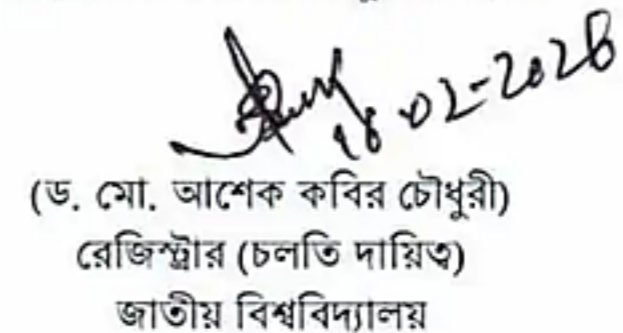 18-02-2026
(ড. মো. আশেক কবির চৌধুরী)
রেজিস্ট্রার (চলতি দায়িত্ব)
জাতীয় বিশ্ববিদ্যালয়